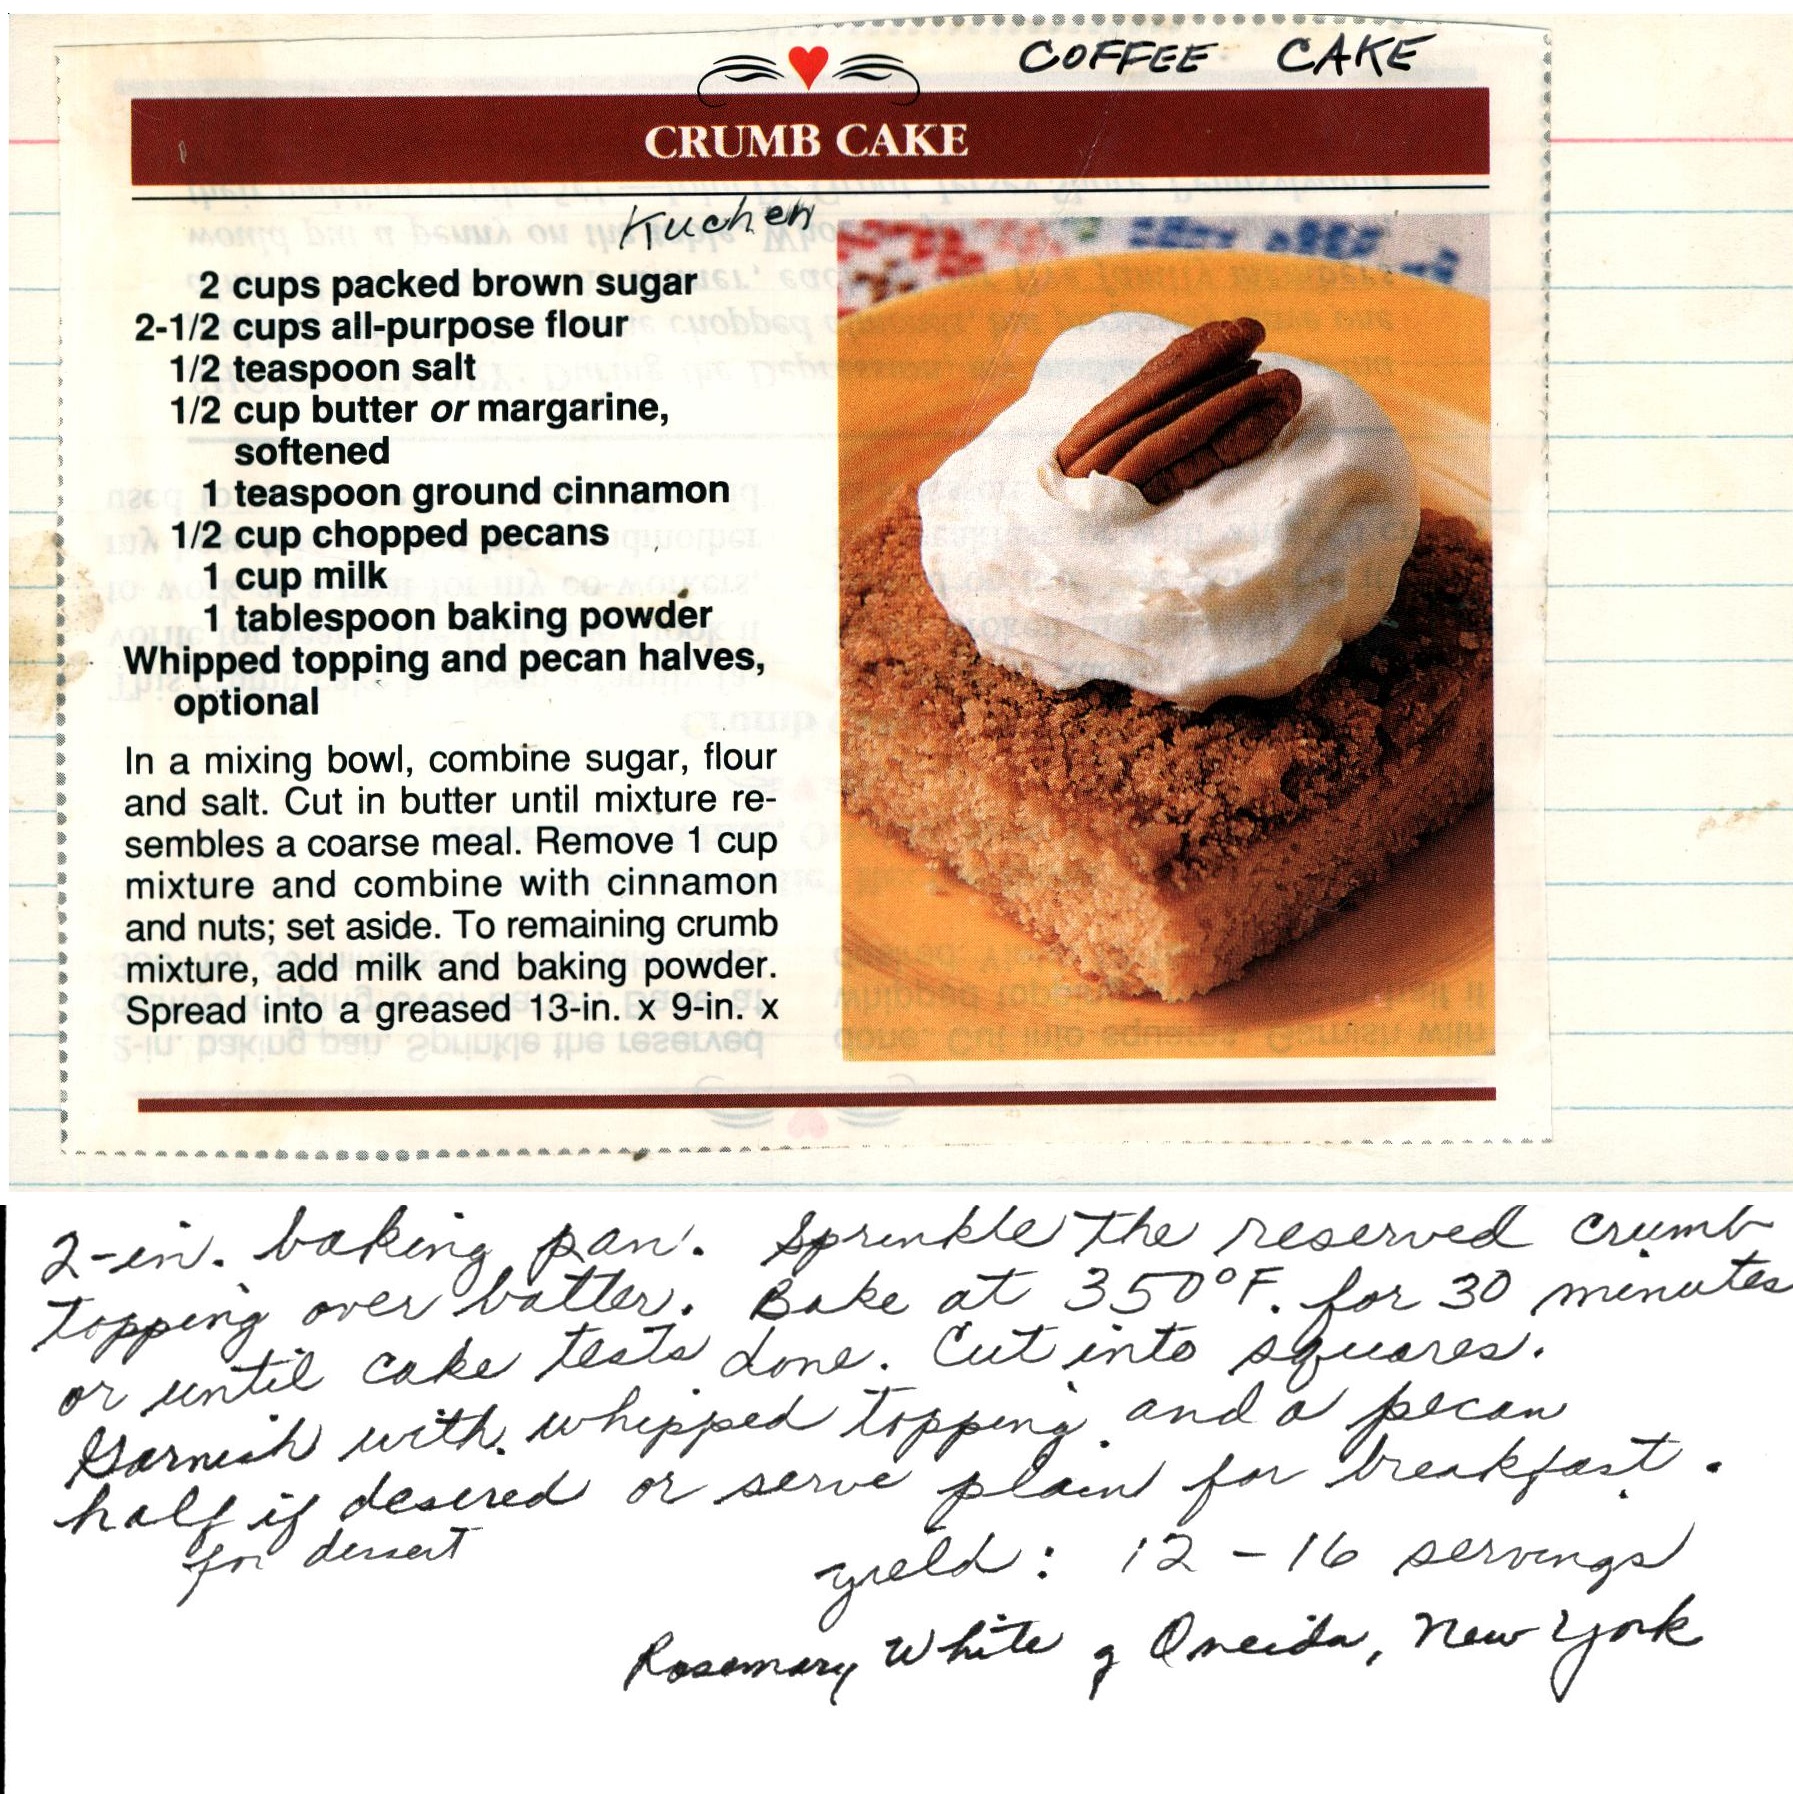 COFFEE CAKE
CRUMB CAKE
Kuchen
2 cups packed brown sugar
2-1/2 cups all-purpose flour
1/2 teaspoon salt
1/2 cup butter or margarine,
softened
1 teaspoon ground cinnamon
1/2 cup chopped pecans
1 cup milk
1 tablespoon baking powder
Whipped topping and pecan halves,
optional
In a mixing bowl, combine sugar, flour
and salt. Cut in butter until mixture re-
sembles a coarse meal. Remove 1 cup
mixture and combine with cinnamon
and nuts; set aside. To remaining crumb
mixture, add milk and baking powder.
Spread into a greased 13-in. x 9-in. x
2-in. baking pan. Sprinkle the reserved crumb
topping over batter. Bake at 350°F. for 30 minutes
or until cake tests done. Cut into squares.
Garnish with whipped topping and a pecan
half if desired or serve plain for breakfast.
for dessert
yield: 12 - 16 servings
Rosemary White of Oneida, New York